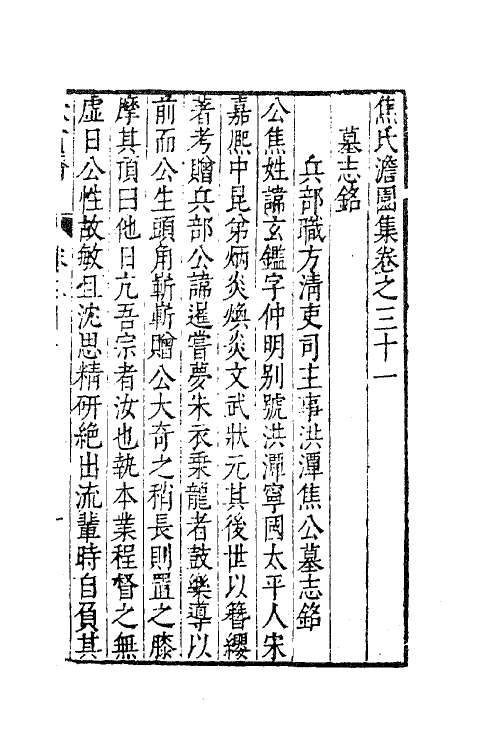 焦氏澹園集卷之三十一
墓志銘
兵部職方清吏司主事洪潭焦公墓志銘
公焦姓諱玄鑑字仲明别號洪潭寧國太平人宋
嘉熈中昆弟炳炎煥炎文武狀元其後世以簪纓
著考贈兵部公諱暹嘗夢朱衣乗龍者鼓樂導以
前而公生頭角嶄嶄贈公大奇之稍長則置之膝
摩其頂曰他日亢吾宗者汝也執本業程督之無
虚日公性故敏且沈思精研絶出流輩時自負其